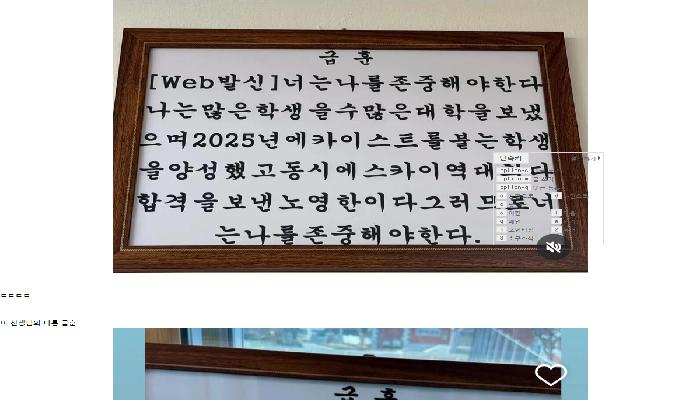 급 훈
[Web발신]너는나를존중해야한다
나는많은학생을수많은대학을보냈
으며2025년에카이스트를붙는학생
을양성했고동시에스카이역대 다
합격을보낸노영한이다그러므로너
는나를존중해야한다.
ㄷㄷㄷㄷ
이 선생님의 다른 급훈
급 훈